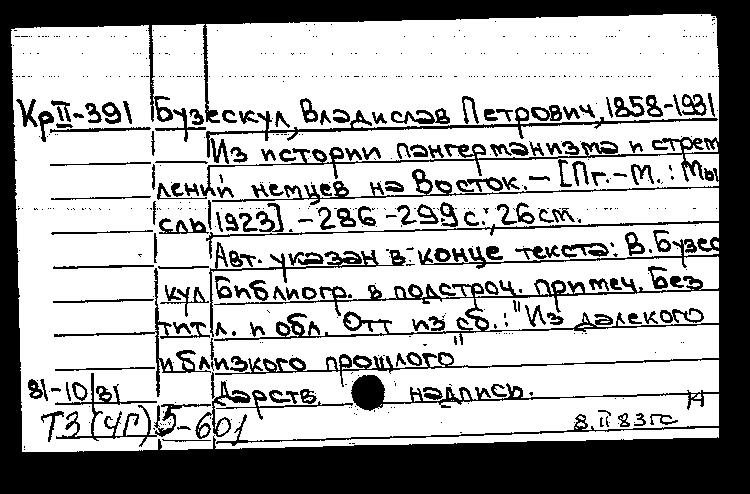 КрII-391 Бузескул, Владислав Петрович, 1858-1931
Из истории пангерманизма и стрем
лений немцев на Восток. — [Пг.-М.: Мы
сль, 1923]. - 286 - 299 с.; 26 см.
Авт. указан в конце текста: В. Бузес
кул Библиогр. в подстроч. примеч. Без
тит. л. и обл. Отт из сб.: "Из далекого
и близкого прошлого"
81-10/81 Дарств. надпись.
ТЗ(4Г)5-601
8.II 83гс